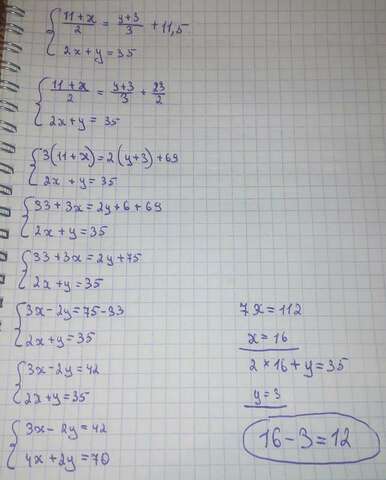 { (11+x)/2 = (y+3)/3 + 11,5
2x+y=35
{ (11+x)/2 = (y+3)/3 + 23/2
2x+y=35
{ 3(11+x)=2(y+3)+69
2x+y=35
{ 33+3x=2y+6+69
2x+y=35
{ 33+3x=2y+75
2x+y=35
{ 3x-2y=75-33
2x+y=35
{ 3x-2y=42
2x+y=35
{ 3x-2y=42
4x+2y=70
7x=112
x=16
2*16+y=35
y=3
16-3=12